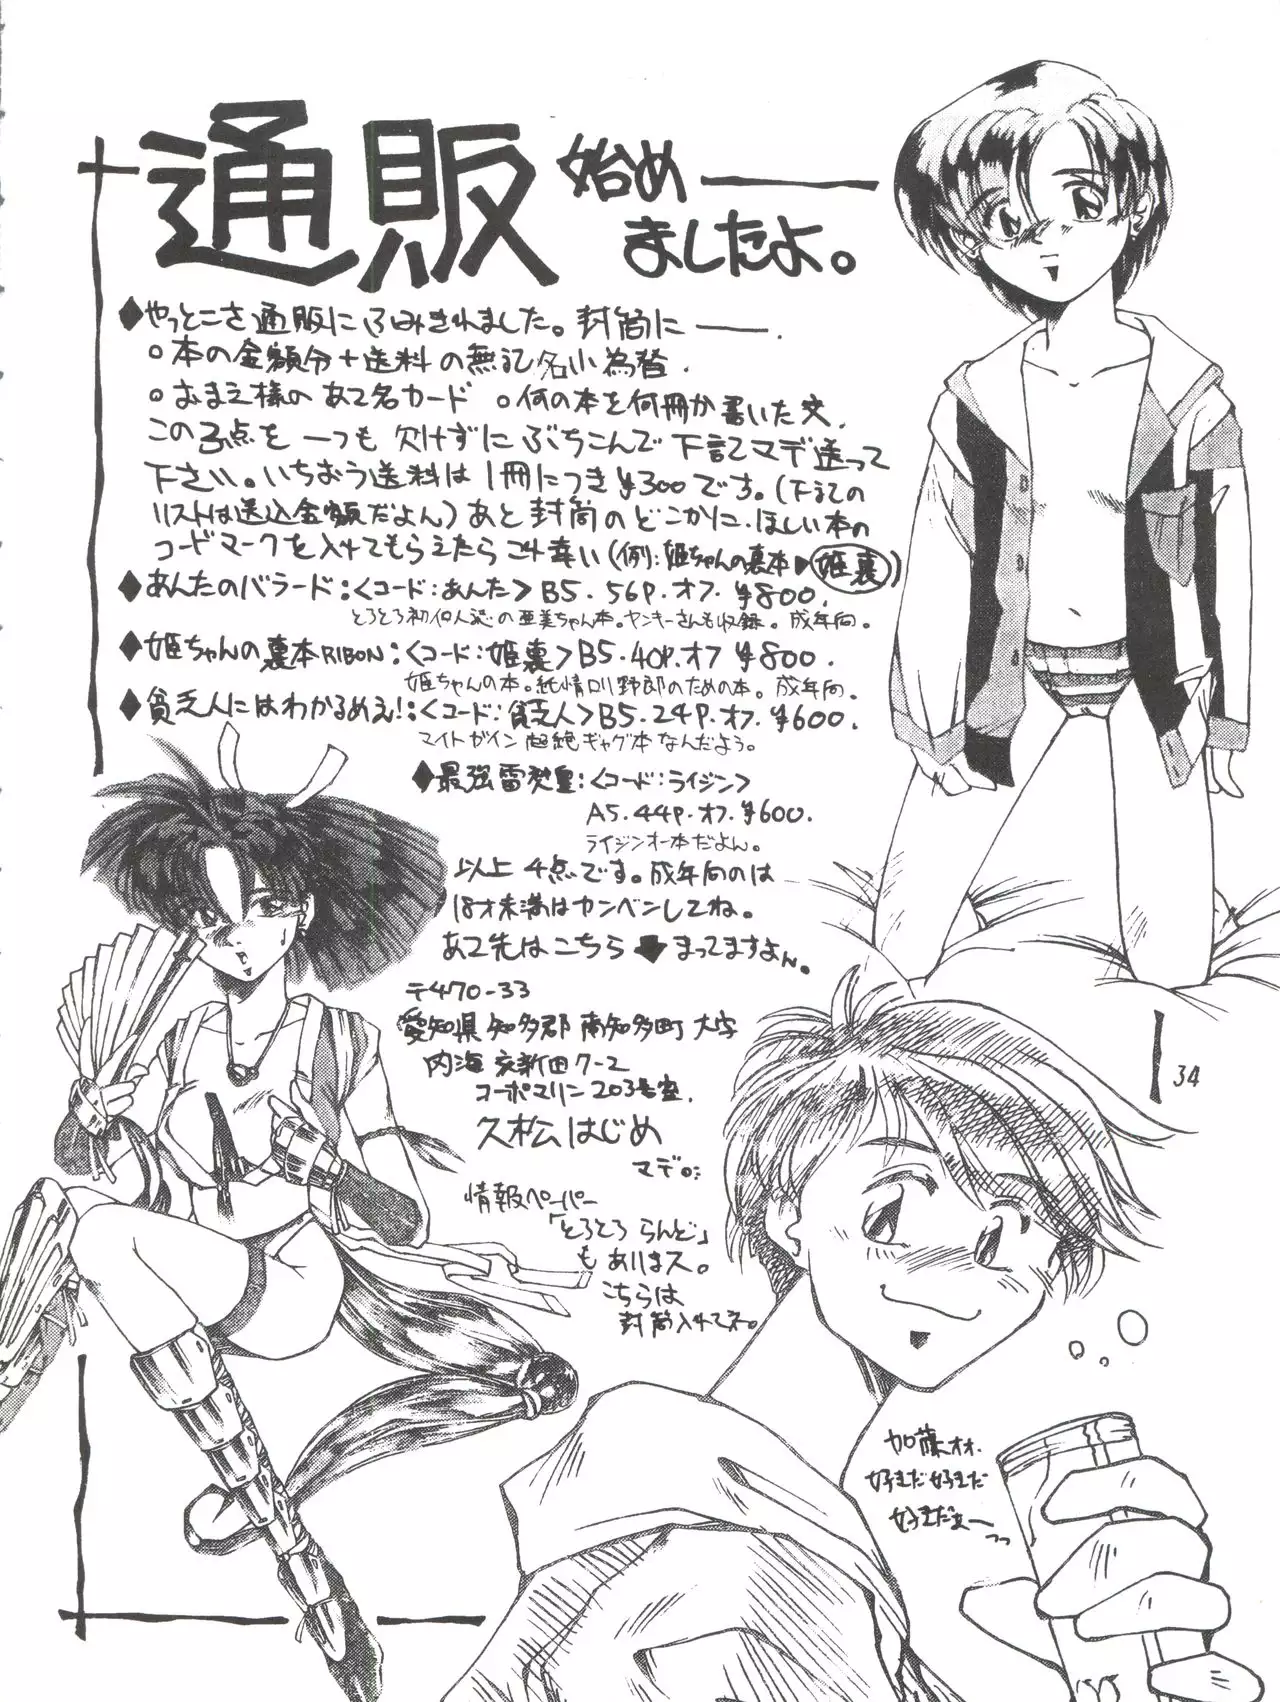 通販 始め
ましたよ。
◆やっとこさ通販にふみきれました。封筒に──.
○本の金額分+送料の無記名小為替.
○おまえ様のあて名カード ○何の本を何冊か書いた文.
この3点を一つも欠けずにぶちこんで下記マデ送って
下さい。いちおう送料は1冊につき¥300です。(下記の
リストは送込金額だよん)あと封筒のどこかに、ほしい本の
コードマークを入れてもらえたらこれ幸い(例:姫ちゃんの裏本▶姫裏)
◆あんたのバラード:<コード:あんた>B5.56P.オフ.¥800.
とろとろ初個人誌の亜美ちゃん本。ヤンキーさんも収録。成年向。
◆姫ちゃんの裏本RIBON:<コード:姫裏>B5.40P.オフ¥800.
姫ちゃんの本。純情ロリ野郎のための本。成年向。
◆貧乏人にはわかるめえ!:<コード:貧乏人>B5.24P.オフ.¥600.
マイトガイン超絶ギャグ本なんだよう。
◆最強雷発皇:<コード:ライジン>
A5.44P.オフ.¥600.
ライジンオー本だよん。
以上4点です。成年向のは
18才未満はカンベンしてね。
あて先はこちら⬇まってますよん。
〒470-33
愛知県知多郡南知多町大字
内海 新田7-2
コーポマリン203号室.
久松はじめ
マデ。
情報ペーパー
「とろとろらんど」
もありまス。
こちらは
封筒入れてネ。
34
加藤オオ.
好きだ好きだ
好きだぁーっっ